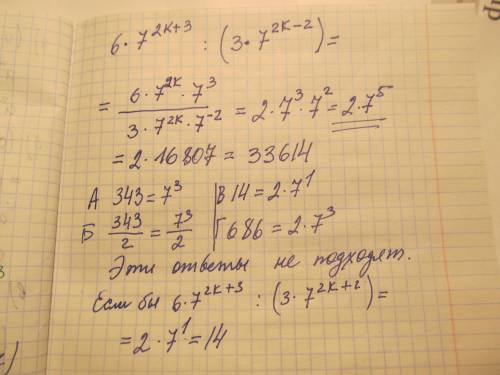 6·7^{2k+3} : (3·7^{2k-2}) =
= \frac{6·7^{2k}·7^3}{3·7^{2k}·7^{-2}} = 2·7^3·7^2 = 2·7^5
= 2·16807 = 33614
А 343 = 7^3 | В 14 = 2·7^1
Б \frac{343}{2} = \frac{7^3}{2} | Г 686 = 2·7^3
Эти ответы не подходят.
Если бы 6·7^{2k+3} : (3·7^{2k+2}) =
= 2·7^1 = 14